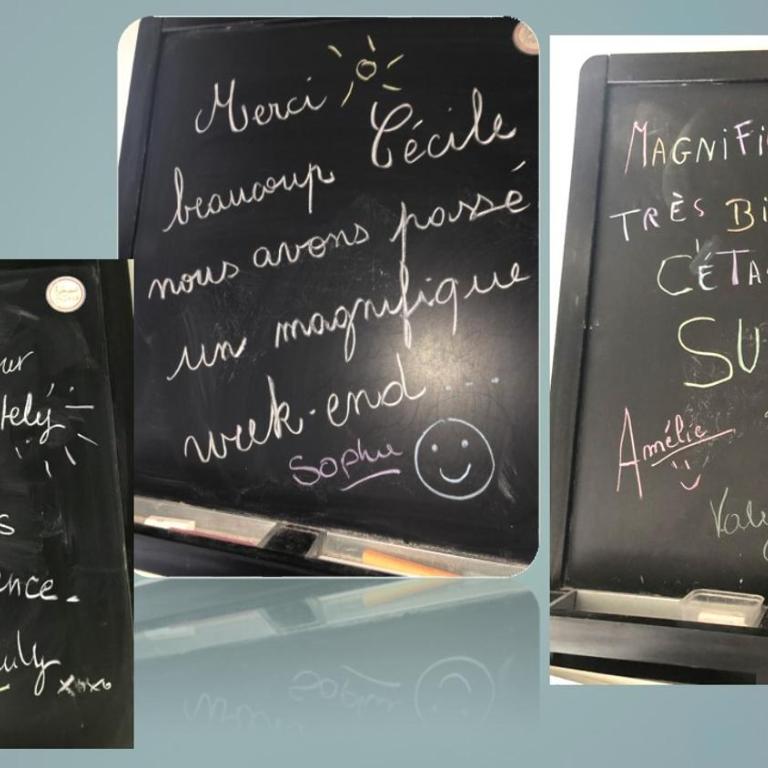 ur
tely
s
ence.
ully
xoxo
Merci
Cécile
beaucoup
nous avons passé
un magnifique
week-end ...
Sophie
MAGNIFI
TRÈS BI
CÉTA
SU
Amélie